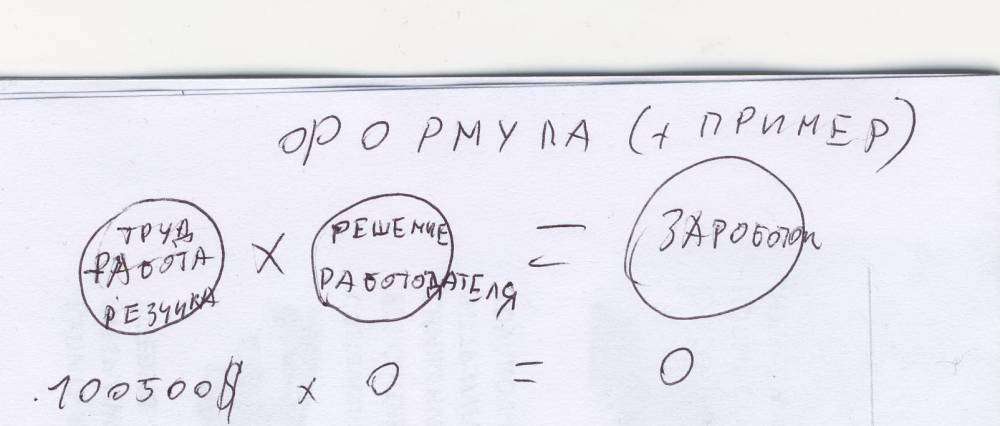 ФОРМУЛА (+ ПРИМЕР)
ТРУД РАБОТА РЕЗЧИКА × РЕШЕНИЕ РАБОТОДАТЕЛЯ = ЗАРОБОТОК
100500$ × 0 = 0